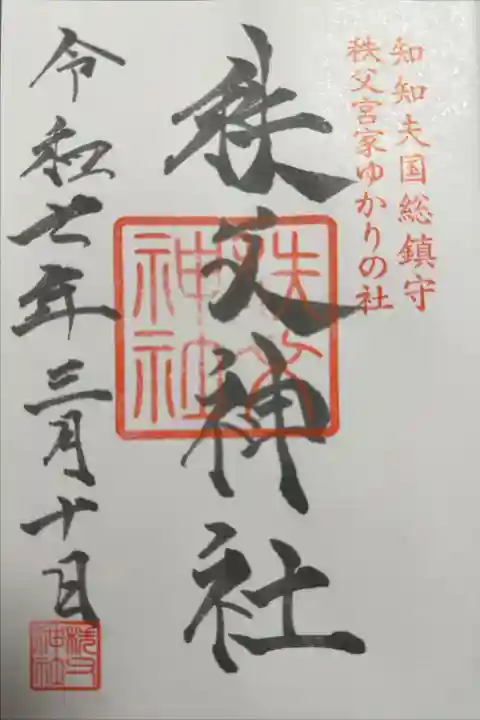 知知夫国総鎮守
秩父宮家ゆかりの社
秩父神社
秩父神社
令和七年三月十日
秩父神社